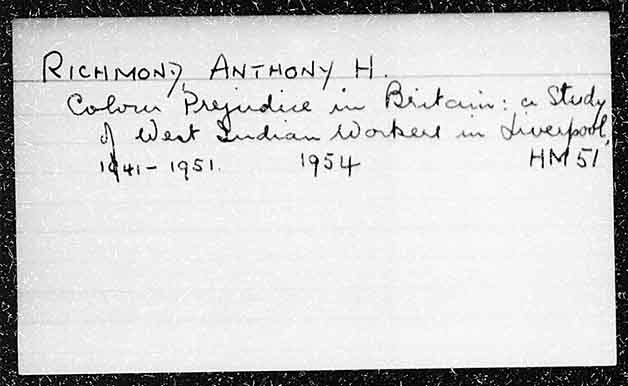 RICHMOND, ANTHONY H.
Colour Prejudice in Britain: a Study
of West Indian Workers in Liverpool,
1941-1951. 1954 HM 51